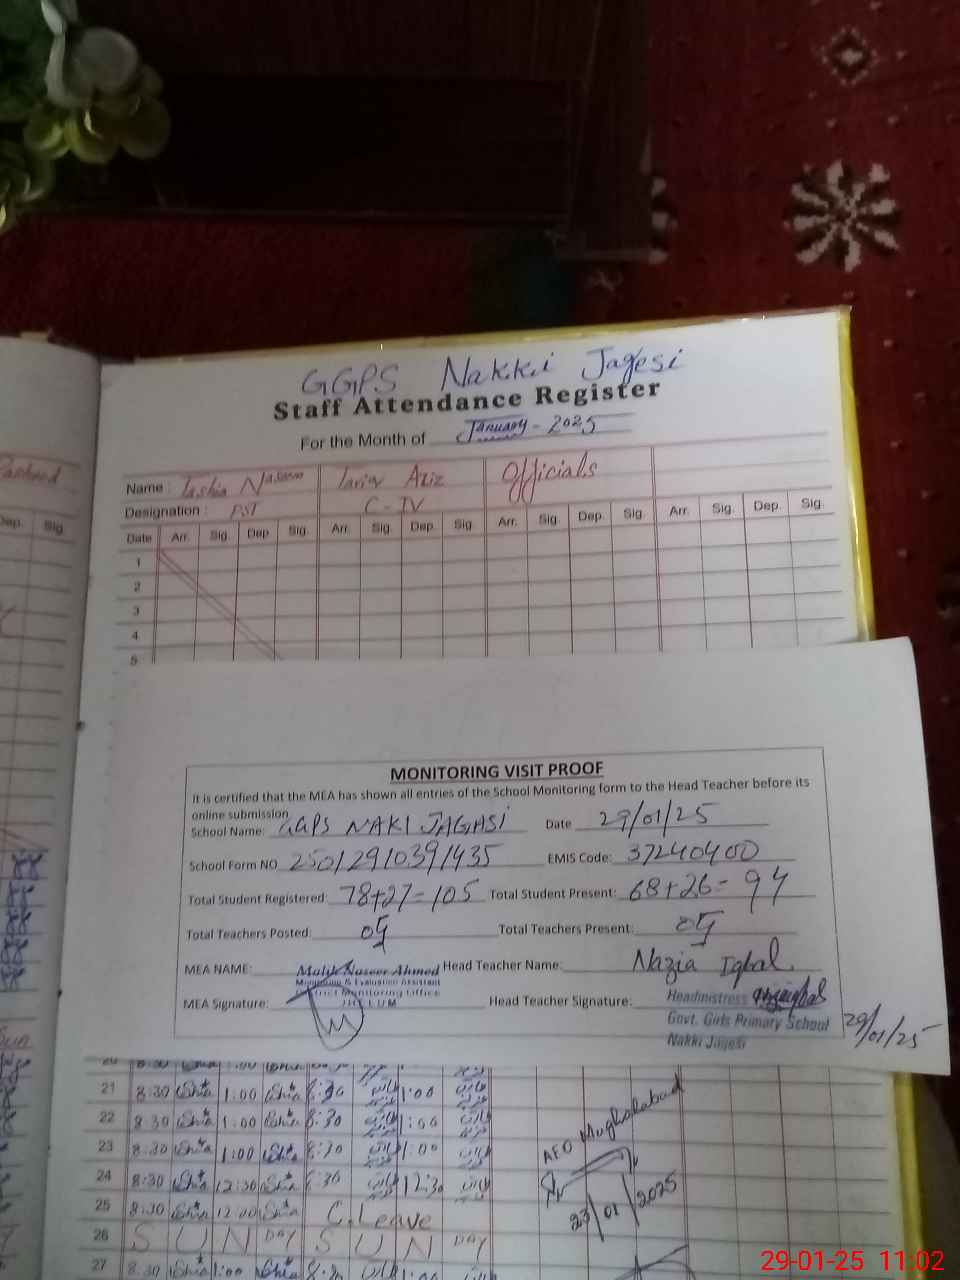 GGPS Nakki Jagesi
Staff Attendance Register
For the Month of January - 2025
Name : Tashia Naseem Tariq Aziz Officials
Designation : PST C-IV
Date Arr. Sig. Dep. Sig. Arr. Sig. Dep. Sig. Arr. Sig. Dep. Sig. Arr. Sig. Dep. Sig.
Dep. Sig.
1
2
3
4
5
MONITORING VISIT PROOF
It is certified that the MEA has shown all entries of the School Monitoring form to the Head Teacher before its
online submission
School Name: GGPS NAKI JAGASI Date 29/01/25
School Form NO 250129103911435 EMIS Code: 37240400
Total Student Registered: 78+27=105 Total Student Present: 68+26=94
Total Teachers Posted: 05 Total Teachers Present: 05
MEA NAME: Malik Naseer Ahmed Head Teacher Name: Nazia Iqbal.
Monitoring & Evaluation Assistant
District Monitoring Office
MEA Signature: JHELUM Head Teacher Signature: Headmistress
Govt. Girls Primary School
Nakki Jagesi
29/01/25
20 8:30
21 8:30 1:00 8:30 1:00
22 8:30 1:00 8:30 1:00
23 8:30 1:00 8:30 1:00
24 8:30 12:30 8:30 12:30
25 8:30 12:00 C.Leave
26 SUNDAY SUNDAY
27 8:30 1:00 8:30 1:00
AEO Mughalabad
23/01/2025
29-01-25 11:02